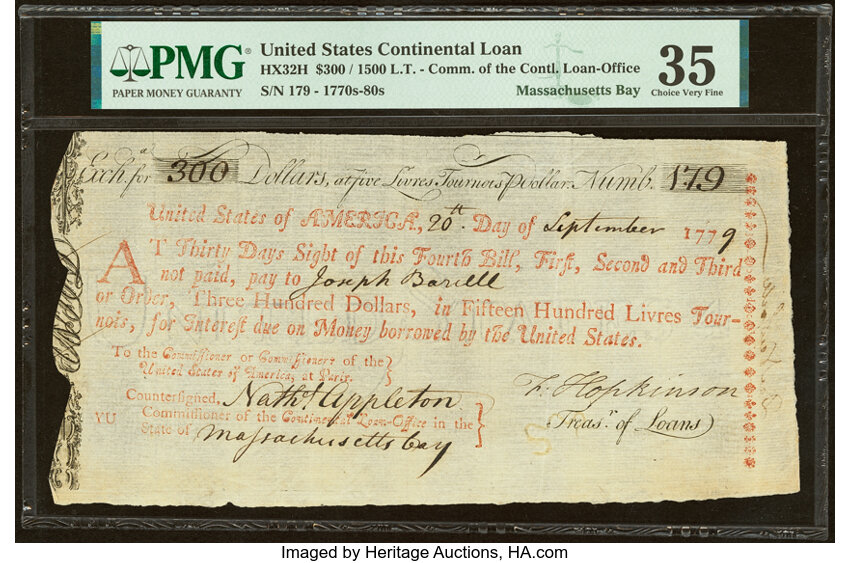 PMG
PAPER MONEY GUARANTY
United States Continental Loan
HX32H $300 / 1500 L.T. - Comm. of the Contl. Loan-Office
S/N 179 - 1770s-80s
Massachusetts Bay
35
Choice Very Fine
Exch.ª for 300 Dollars, at five Livres Tournois ⅌ Dollar. Numb. 179
United States of AMERICA, 20th. Day of September 1779
AT Thirty Days Sight of this Fourth Bill, First, Second and Third
not paid, pay to Joseph Barrell
or Order, Three Hundred Dollars, in Fifteen Hundred Livres Tour-
nois, for Interest due on Money borrowed by the United States.
To the Commissioner or Commissioners of the
United States of America, at Paris.
Countersigned, Nathl. Appleton
YU Commissioner of the Continental Loan-Office in the
State of Massachusetts bay
F. Hopkinson
Treas.r of Loans
Imaged by Heritage Auctions, HA.com